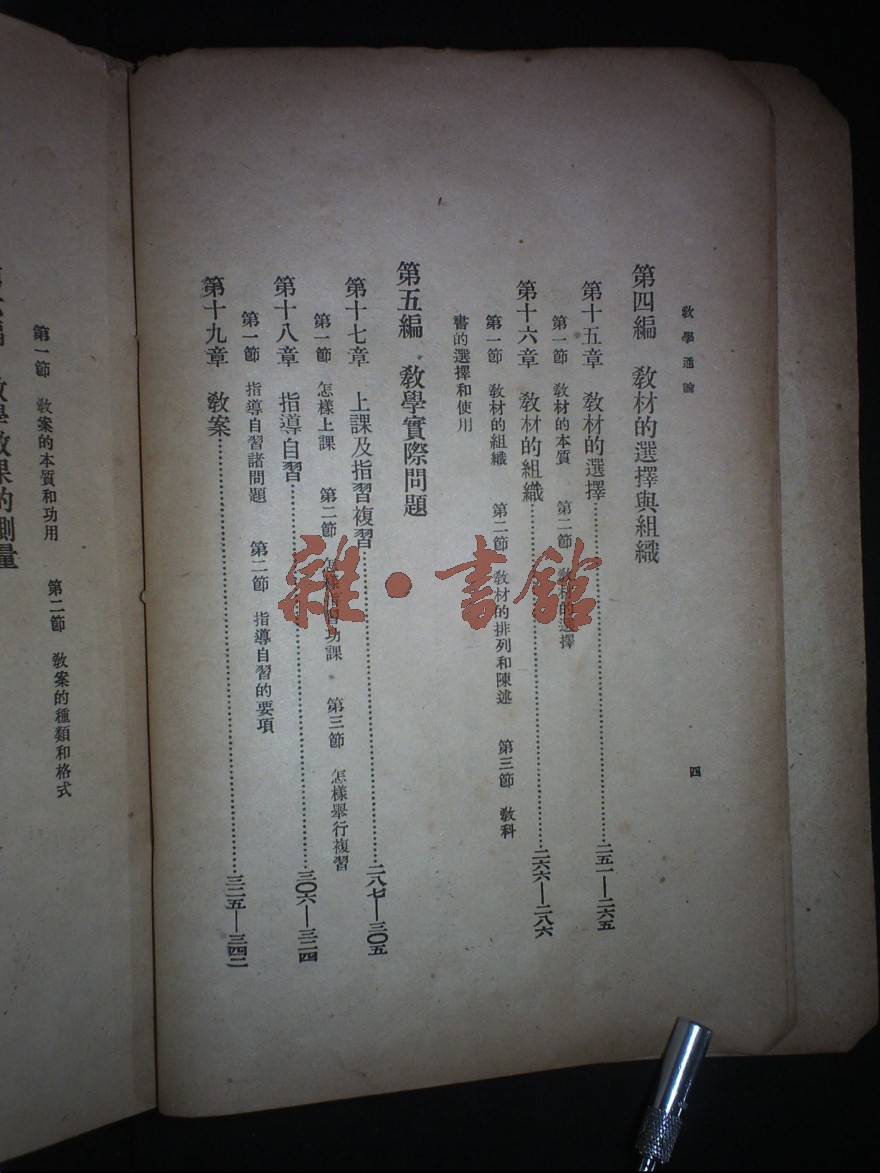 教學通論
四
第四編　教材的選擇與組織
第十五章　教材的選擇……………二五一—二六五
第一節　教材的本質　第二節　教材的選擇
第十六章　教材的組織……………二六六—二八六
第一節　教材的組織　第二節　教材的排列和陳述　第三節　教科
書的選擇和使用
第五編　教學實際問題
第十七章　上課及指習複習……………二八七—三〇五
第一節　怎樣上課　第二節　怎樣指習功課　第三節　怎樣舉行複習
第十八章　指導自習……………三〇六—三二四
第一節　指導自習諸問題　第二節　指導自習的要項
第十九章　教案……………三二五—三四二
第一節　教案的本質和功用　第二節　教案的種類和格式
教學效果的測量
雜·書館